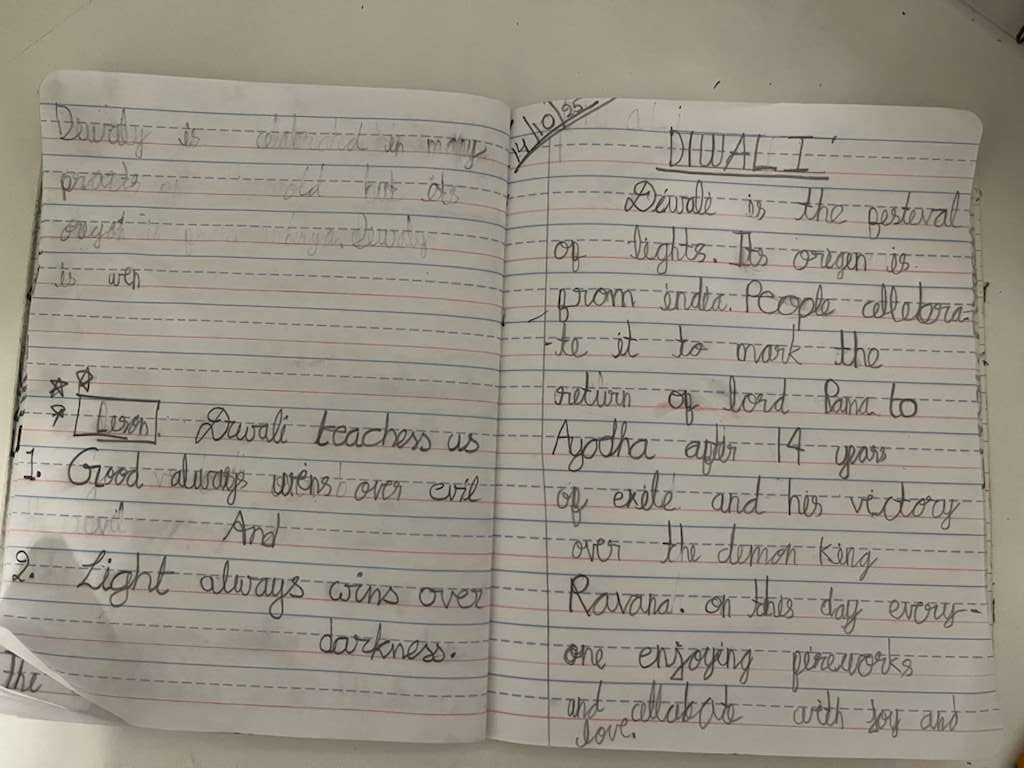 is in many
its
is
Leson. Diwali teachess us
1. Good always wins over evil
And
2. Light always wins over
darkness.
The
14/10/25
DIWALI
Diwali is the festeval
of lights. Its origen is
from india. People cellebora-
te it to mark the
return of lord Rama to
Ayodha after 14 years
of exile and his victory
over the demon king
Ravana. on this day every-
one enjoying fireworks
and with Joy and
love.